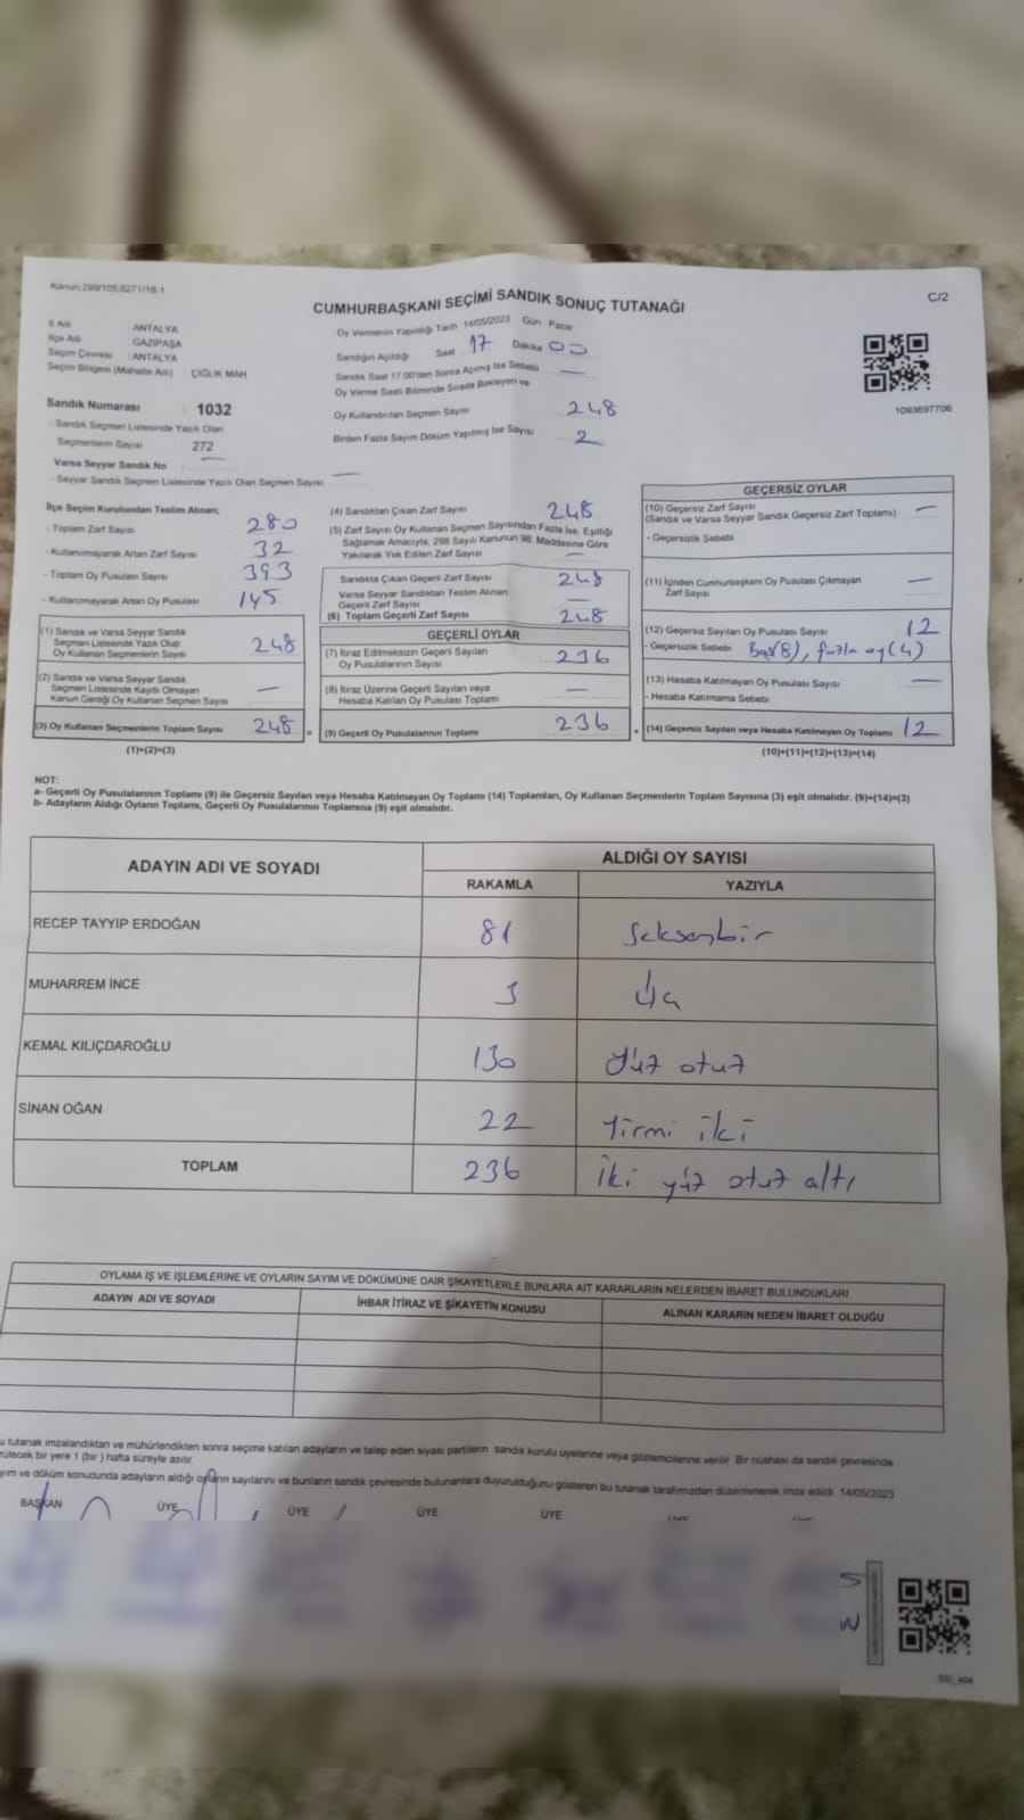 Kanun:298/105,6271/18-1
C/2
CUMHURBAŞKANI SEÇİMİ SANDIK SONUÇ TUTANAĞI
İl Adı : ANTALYA
İlçe Adı : GAZİPAŞA
Seçim Çevresi : ANTALYA
Seçim Bölgesi (Mahalle Adı) : ÇIĞLIK MAH
Sandık Numarası 1032
- Sandık Seçmen Listesinde Yazılı Olan
Seçmenlerin Sayısı 272
Varsa Seyyar Sandık No
- Seyyar Sandık Seçmen Listesinde Yazılı Olan Seçmen Sayısı —
Oy Vermenin Yapıldığı Tarih 14/05/2023 Gün Pazar
Sandığın Açıldığı Saat 17 Dakika 00
Sandık Saat 17.00'den Sonra Açılmış İse Sebebi —
Oy Verme Saati Bitiminde Sırada Bekleyen ve
Oy Kullandırılan Seçmen Sayısı 248
Birden Fazla Sayım Döküm Yapılmış İse Sayısı 2
1093697706
İlçe Seçim Kurulundan Teslim Alınan;
- Toplam Zarf Sayısı 280
- Kullanılmayarak Artan Zarf Sayısı 32
- Toplam Oy Pusulası Sayısı 393
- Kullanılmayarak Artan Oy Pusulası 145
(1) Sandık ve Varsa Seyyar Sandık
Seçmen Listesinde Yazılı Olup
Oy Kullanan Seçmenlerin Sayısı 248
(2) Sandık ve Varsa Seyyar Sandık
Seçmen Listesinde Kayıtlı Olmayan
Kanun Gereği Oy Kullanan Seçmen Sayısı —
(3) Oy Kullanan Seçmenlerin Toplam Sayısı 248
(1)+(2)=(3)
(4) Sandıktan Çıkan Zarf Sayısı 248
(5) Zarf Sayısı Oy Kullanan Seçmen Sayısından Fazla İse, Eşitliği
Sağlamak Amacıyla, 298 Sayılı Kanunun 98. Maddesine Göre
Yakılarak Yok Edilen Zarf Sayısı —
Sandıkta Çıkan Geçerli Zarf Sayısı 248
Varsa Seyyar Sandıktan Teslim Alınan
Geçerli Zarf Sayısı —
(6) Toplam Geçerli Zarf Sayısı 248
GEÇERLİ OYLAR
(7) İtiraz Edilmeksizin Geçerli Sayılan
Oy Pusulalarının Sayısı 236
(8) İtiraz Üzerine Geçerli Sayılan veya
Hesaba Katılan Oy Pusulası Toplamı —
(9) Geçerli Oy Pusulalarının Toplamı 236
GEÇERSİZ OYLAR
(10) Geçersiz Zarf Sayısı
(Sandık ve Varsa Seyyar Sandık Geçersiz Zarf Toplamı) —
- Geçersizlik Sebebi
(11) İçinden Cumhurbaşkanı Oy Pusulası Çıkmayan
Zarf Sayısı —
(12) Geçersiz Sayılan Oy Pusulası Sayısı 12
- Geçersizlik Sebebi Boş(8), fazla oy(4)
(13) Hesaba Katılmayan Oy Pusulası Sayısı —
- Hesaba Katılmama Sebebi
(14) Geçersiz Sayılan veya Hesaba Katılmayan Oy Toplamı 12
(10)+(11)+(12)+(13)=(14)
NOT:
a- Geçerli Oy Pusulalarının Toplamı (9) ile Geçersiz Sayılan veya Hesaba Katılmayan Oy Toplamı (14) Toplamları, Oy Kullanan Seçmenlerin Toplam Sayısına (3) eşit olmalıdır. (9)+(14)=(3)
b- Adayların Aldığı Oyların Toplamı, Geçerli Oy Pusulalarının Toplamına (9) eşit olmalıdır.
ADAYIN ADI VE SOYADI
ALDIĞI OY SAYISI
RAKAMLA YAZIYLA
RECEP TAYYIP ERDOĞAN 81 Seksenbir
MUHARREM İNCE 3 Üç
KEMAL KILIÇDAROĞLU 130 Yüz otuz
SİNAN OĞAN 22 Yirmi iki
TOPLAM 236 İki yüz otuz altı
OYLAMA İŞ VE İŞLEMLERİNE VE OYLARIN SAYIM VE DÖKÜMÜNE DAİR ŞİKAYETLERLE BUNLARA AİT KARARLARIN NELERDEN İBARET BULUNDUKLARI
ADAYIN ADI VE SOYADI İHBAR İTİRAZ VE ŞİKAYETİN KONUSU ALINAN KARARIN NEDEN İBARET OLDUĞU
u tutanak imzalandıktan ve mühürlendikten sonra seçime katılan adayların ve talep eden siyasi partilerin sandık kurulu üyelerine veya gözlemcilerine verilir. Bir nüshası da sandık çevresinde
rülecek bir yere 1 (bir) hafta süreyle asılır.
yım ve döküm sonucunda adayların aldığı oyların sayılarını ve bunların sandık çevresinde bulunanlara duyurulduğunu gösteren bu tutanak tarafımızdan düzenlenerek imza edildi. 14/05/2023
BAŞKAN ÜYE ÜYE ÜYE ÜYE